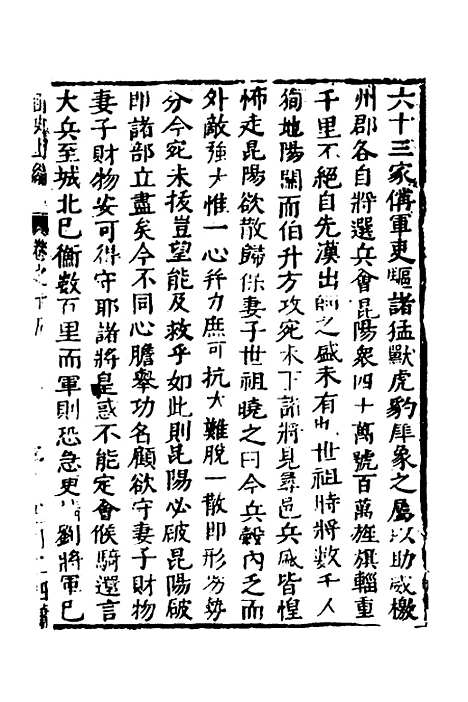 六十三家備軍吏驅諸猛獸虎豹犀象之屬以助威檄
州郡各自將選兵會昆陽衆四十萬號百萬旌旗輜重
千里不絕自先漢出師之盛未有也世祖時將數千人
徇地陽關而伯升方攻宛未下諸將見尋邑兵威皆惶
怖走昆陽欲散歸保妻子世祖曉之曰今兵穀內乏而
外敵強大惟一心并力庶可抗大難脫一散即形分勢
分今宛未拔豈望能及救乎如此則昆陽必破昆陽破
即諸部立盡矣今不同心膽舉功名顧欲守妻子財物
妻子財物安可得守耶諸將皇惑不能定會候騎還言
大兵至城北已衝數百里而軍則恐急更請劉將軍已
卷之十五